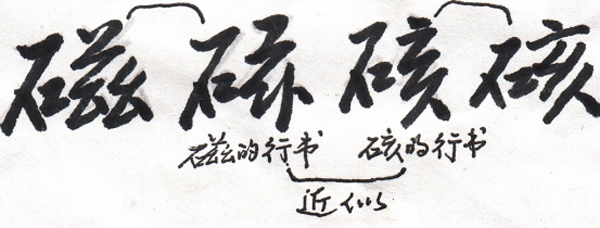 磁 磁 硋 硋
磁的行书 硋的行书
近似